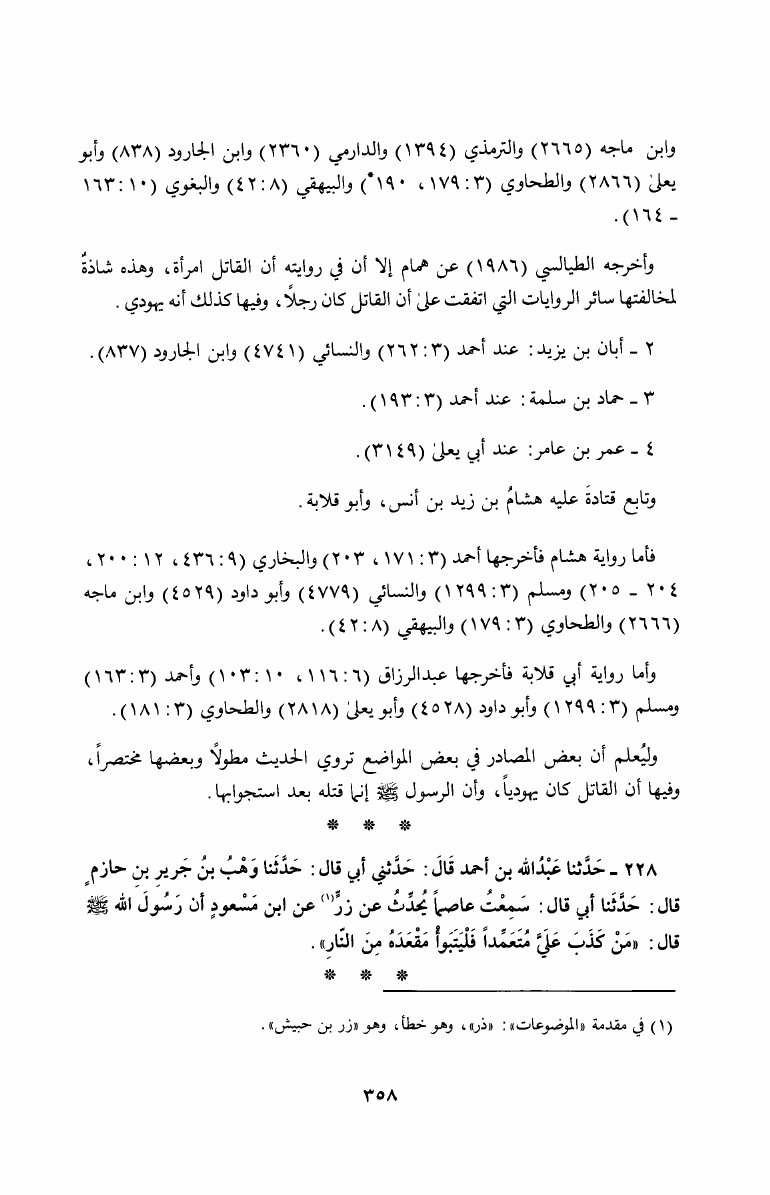 وابن ماجه (٢٦٦٥) والترمذي (١٣٩٤) والدارمي (٢٣٦٠) وابن الجارود (٨٣٨) وأبو
يعلىٰ (٢٨٦٦) والطحاوي (٣: ١٧٩، ١٩٠*) والبيهقي (٨: ٤٢) والبغوي (١٠: ١٦٣
ـ ١٦٤).
وأخرجه الطيالسي (١٩٨٦) عن همام إلا أن في روايته أن القاتل امرأة، وهذه شاذةٌ
لمخالفتها سائر الروايات التي اتفقت علىٰ أن القاتل كان رجلًا، وفيها كذلك أنه يهودي.
٢ ـ أبان بن يزيد: عند أحمد (٣: ٢٦٢) والنسائي (٤٧٤١) وابن الجارود (٨٣٧).
٣ ـ حماد بن سلمة: عند أحمد (٣: ١٩٣).
٤ ـ عمر بن عامر: عند أبي يعلىٰ (٣١٤٩).
وتابع قتادةَ عليه هشامُ بن زيد بن أنس، وأبو قلابة.
فأما رواية هشام فأخرجها أحمد (٣: ١٧١، ٢٠٣) والبخاري (٩: ٤٣٦، ١٢: ٢٠٠،
٢٠٤ ـ ٢٠٥) ومسلم (٣: ١٢٩٩) والنسائي (٤٧٧٩) وأبو داود (٤٥٢٩) وابن ماجه
(٢٦٦٦) والطحاوي (٣: ١٧٩) والبيهقي (٨: ٤٢).
وأما رواية أبي قلابة فأخرجها عبدالرزاق (٦: ١١٦، ١٠: ١٠٣) وأحمد (٣: ١٦٣)
ومسلم (٣: ١٢٩٩) وأبو داود (٤٥٢٨) وأبو يعلىٰ (٢٨١٨) والطحاوي (٣: ١٨١).
وليُعلم أن بعض المصادر في بعض المواضع تروي الحديث مطولًا وبعضها مختصراً،
وفيها أن القاتل كان يهودياً، وأن الرسول ﷺ إنما قتله بعد استجوابها.
* * *
٢٢٨ ـ حَدَّثنا عَبْدُالله بن أحمد قَالَ: حَدَّثني أبي قال: حَدَّثَنا وَهْبُ بنُ جَريرِ بنِ حازمٍ
قال: حَدَّثَنا أبي قال: سَمِعْتُ عاصماً يُحَدِّثُ عن زرٍّ(١) عن ابن مَسْعودٍ أن رَسُولَ الله ﷺ
قال: «مَنْ كَذَبَ عَلَيَّ مُتَعَمِّداً فَلْيَتَبوأْ مَقْعَدَهُ مِنَ النّارِ».
* * *
(١) في مقدمة «الموضوعات»: «ذر»، وهو خطأ، وهو «زر بن حبيش».
٣٥٨